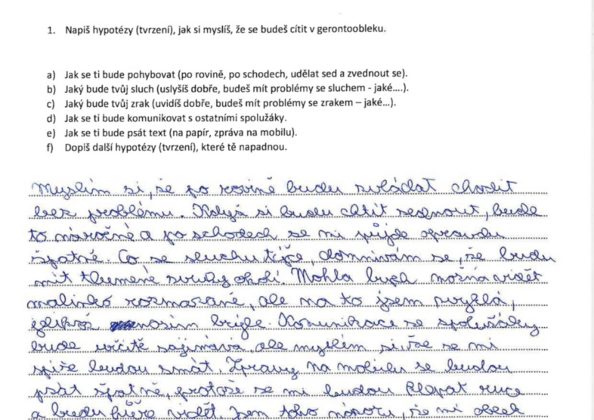 1. Napiš hypotézy (tvrzení), jak si myslíš, že se budeš cítit v gerontoobleku.
a) Jak se ti bude pohybovat (po rovině, po schodech, udělat sed a zvednout se).
b) Jaký bude tvůj sluch (uslyšíš dobře, budeš mít problémy se sluchem - jaké....).
c) Jaký bude tvůj zrak (uvidíš dobře, budeš mít problémy se zrakem – jaké...).
d) Jak se ti bude komunikovat s ostatními spolužáky.
e) Jak se ti bude psát text (na papír, zpráva na mobilu).
f) Dopiš další hypotézy (tvrzení), které tě napadnou.
Myslím si, že po rovině budu zvládat chodit
bez problému. Když si budu chtít sednout, bude
to náročné a po schodech se mi půjde opravdu
špatně. Co se sluchu týče, domnívám se, že budu
mít tlumené zvuky okolí. Mohla bych možná vidět
malinko rozmazaně, ale na to jsem zvyklá,
jelikož nosím brýle. Komunikace se spolužáky
bude určitě zajímavá, ale myslím si, že se mi
spíše budou smát. Zprávy na mobilu se budou
psát špatně, protože se mi budou klepat ruce
a budu hůře vidět. Jsem toho názoru, že mi obec